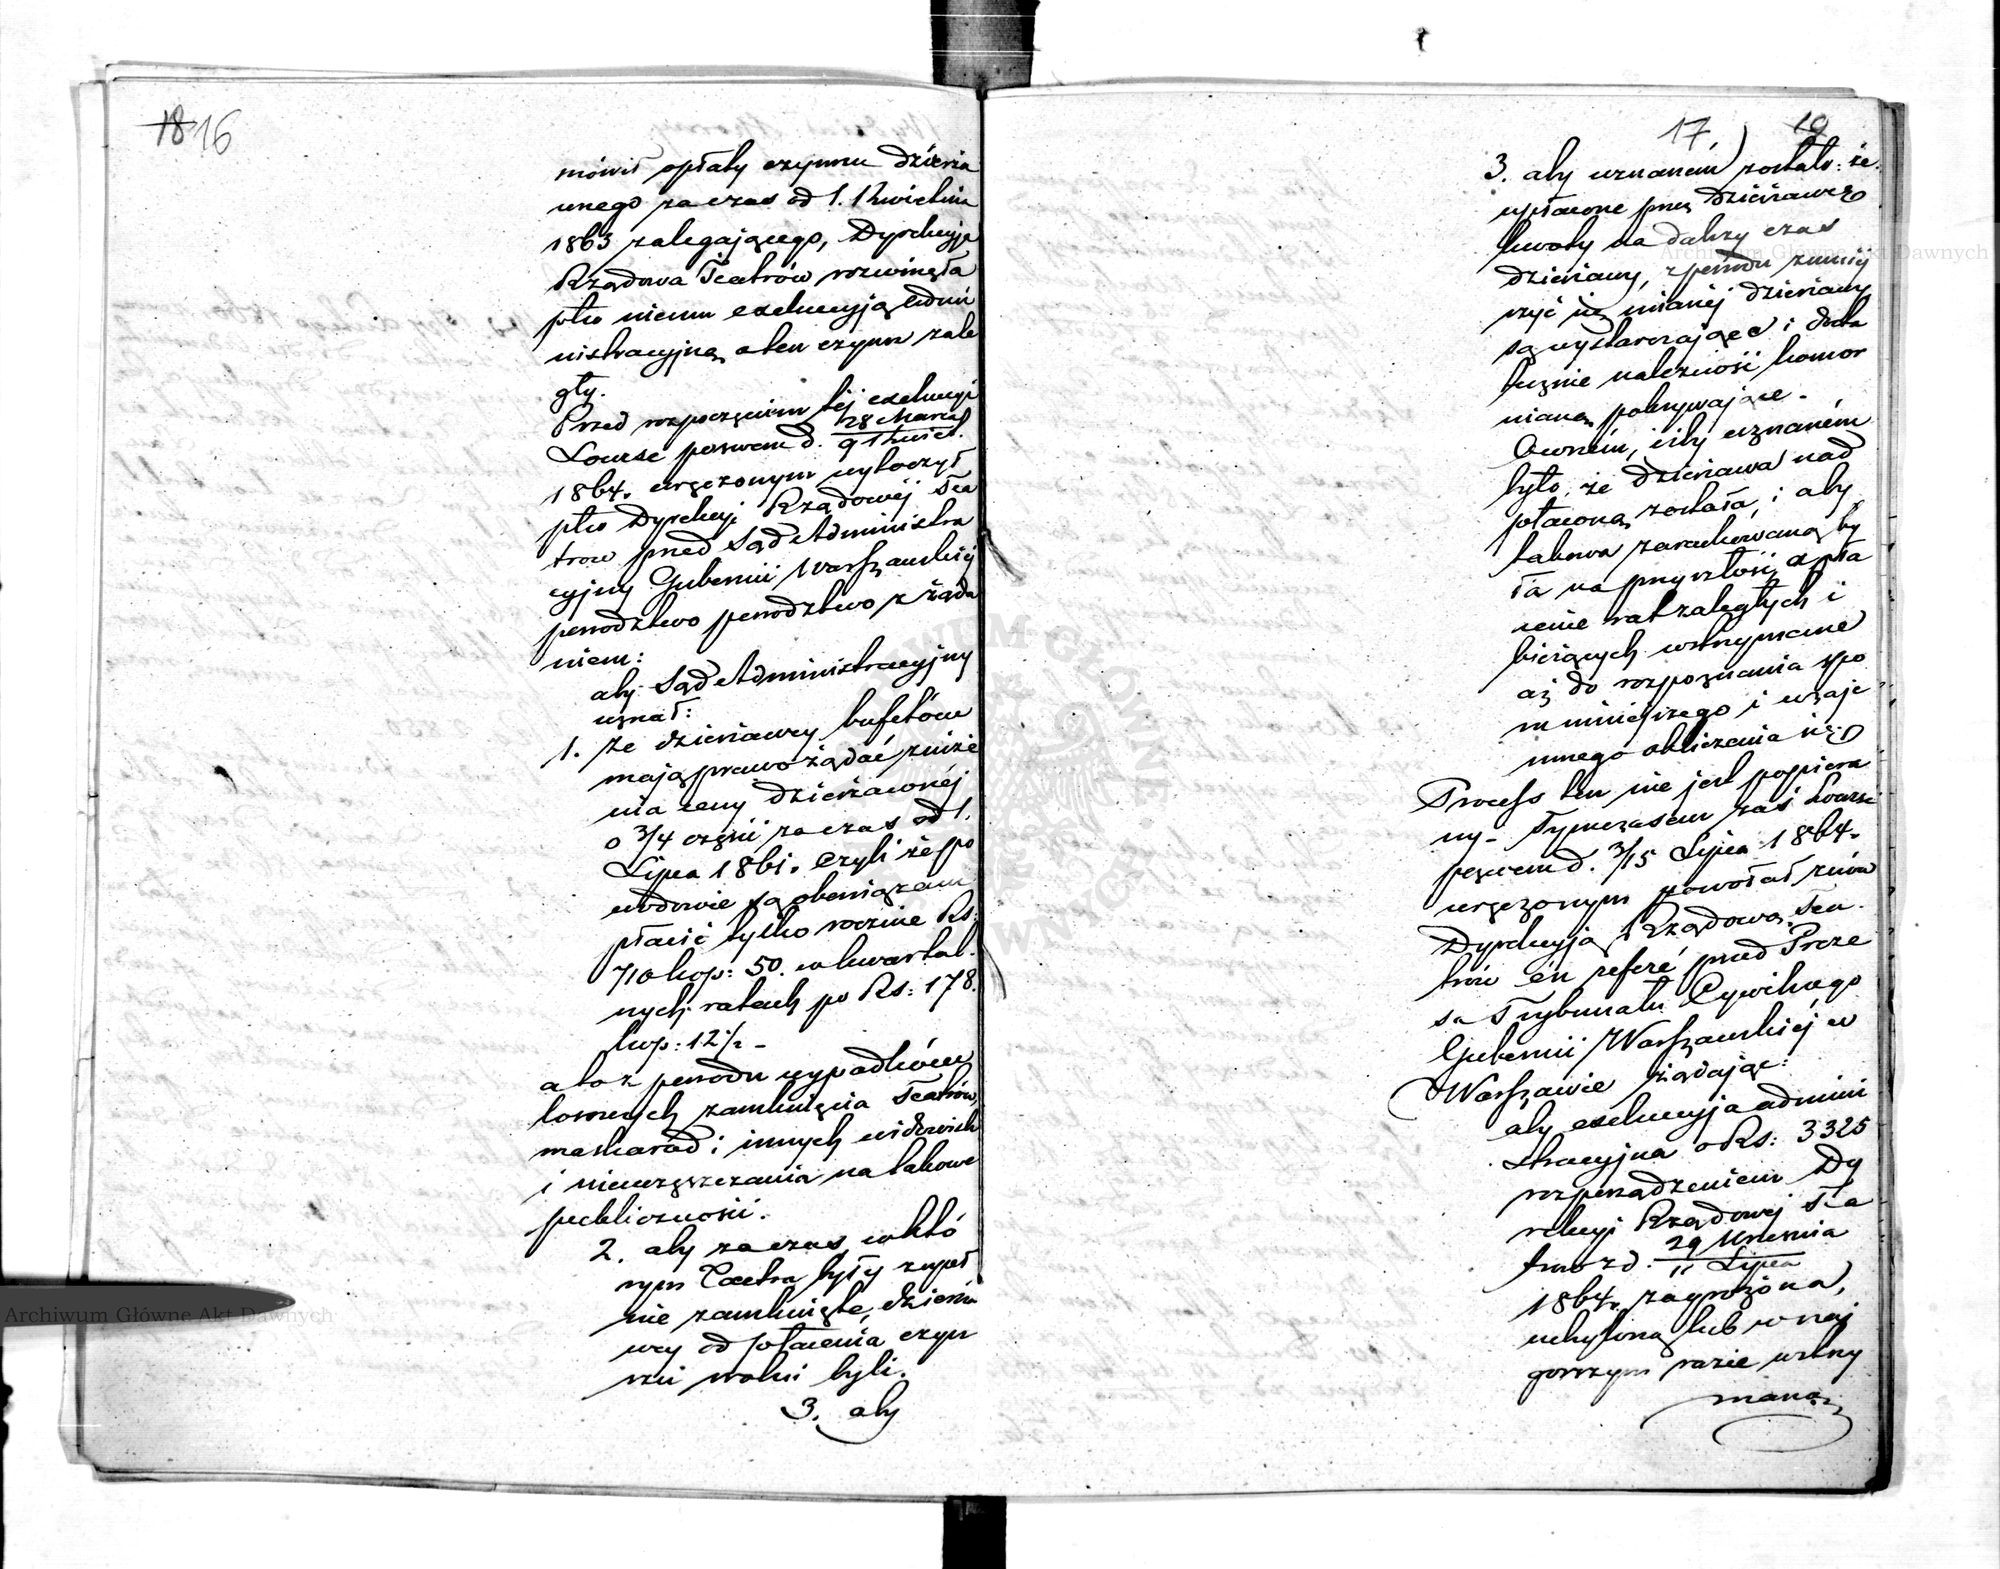 18 16
mówił opłaty czynszu dzierża
wnego za czas od 1. Kwietnia
1863 zalegającego, Dyrekcyja
Rządowa Teatrów rozwinęła
pko niemu exekucyją admi
nistracyjną o ten czynsz zale
gły.
Przed rozpoczęciem tej exekucyi
Lourse pozwem d. 28 Marca / 9 Kwiet.
1864. wręczonym wytoczył
pko Dyrekcyi Rządowéj Tea
trów przed Sąd Administra
cyjny Gubernii Warszawskiéj
powództwo powództwo z żąda
niem:
aby Sąd Administracyjny
uznał:
1. że dzierżawcy bufetów
mają prawo żądać zniże
nia ceny dzierżawnéj
o 3/4 części za czas od 1.
Lipca 1861. czyli że po
wodowie są obowiązani
płacić tylko rocznie Rs:
710 kop: 50. w kwartal
nych ratach po Rs: 178.
kop: 12 1/2 –
a to z powodu wypadków
losowych zamknięcia Teatrów,
maskarad i innych widowisk
i nieuczęszczania na takowe
publiczności.
2. aby za czas w któ
rym Teatra były zupeł
nie zamknięte, dzierża
wcy od płacenia czyn
szu wolni byli.
3. aby
17 19
3. aby uznaném zostało: że
wpłacone przez Dzierżawcę
kwoty na dalszy czas
dzierżawy, z powodu zmniéj
szyć się mianéj dzierżawy
są wystarczające i dosta
tecznie należność komor
nianą pokrywające –
Owszem, iżby uznaném
było, że dzierżawa nad
płaconą została, i aby
takowa zarachowaną by
ła na przyszłość a pła
cenie rat zaległych i
bieżących wstrzymane
aż do rozpoznania spo
ru niniejszego i wzaje
mnego obliczenia się.
Process ten nie jest popiera
ny – Tymczasem zaś Lourse
pozwem d. 3/15 Lipca 1864.
wręczonym powołał znów
Dyrekcyją Rządową Tea
trów en referé przed Preze
sa Trybunału Cywilnego
Gubernii Warszawskiéj w
Warszawie żądając:
aby exekucyja admini
stracyjna o Rs: 3325
rozporządzeniem Dy
rekcyi Rządowéj Tea
trów z d. 29 Czerwca / 11 Lipca
1864. zagrożona,
uchyloną lub w naj
gorszym razie wstrzy
maną
Archiwum Główne Akt Dawnych
Archiwum Główne Akt Dawnych